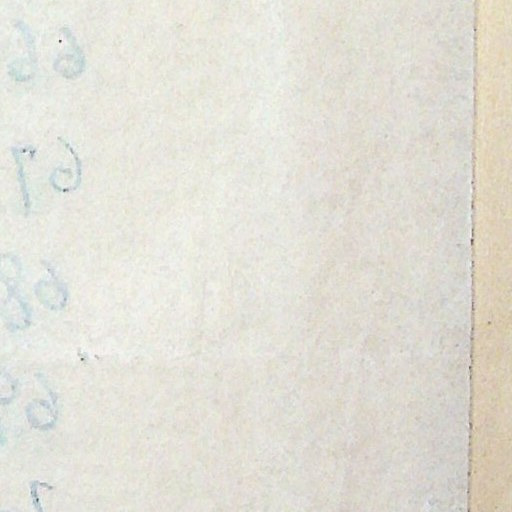 66
67
68
69
7